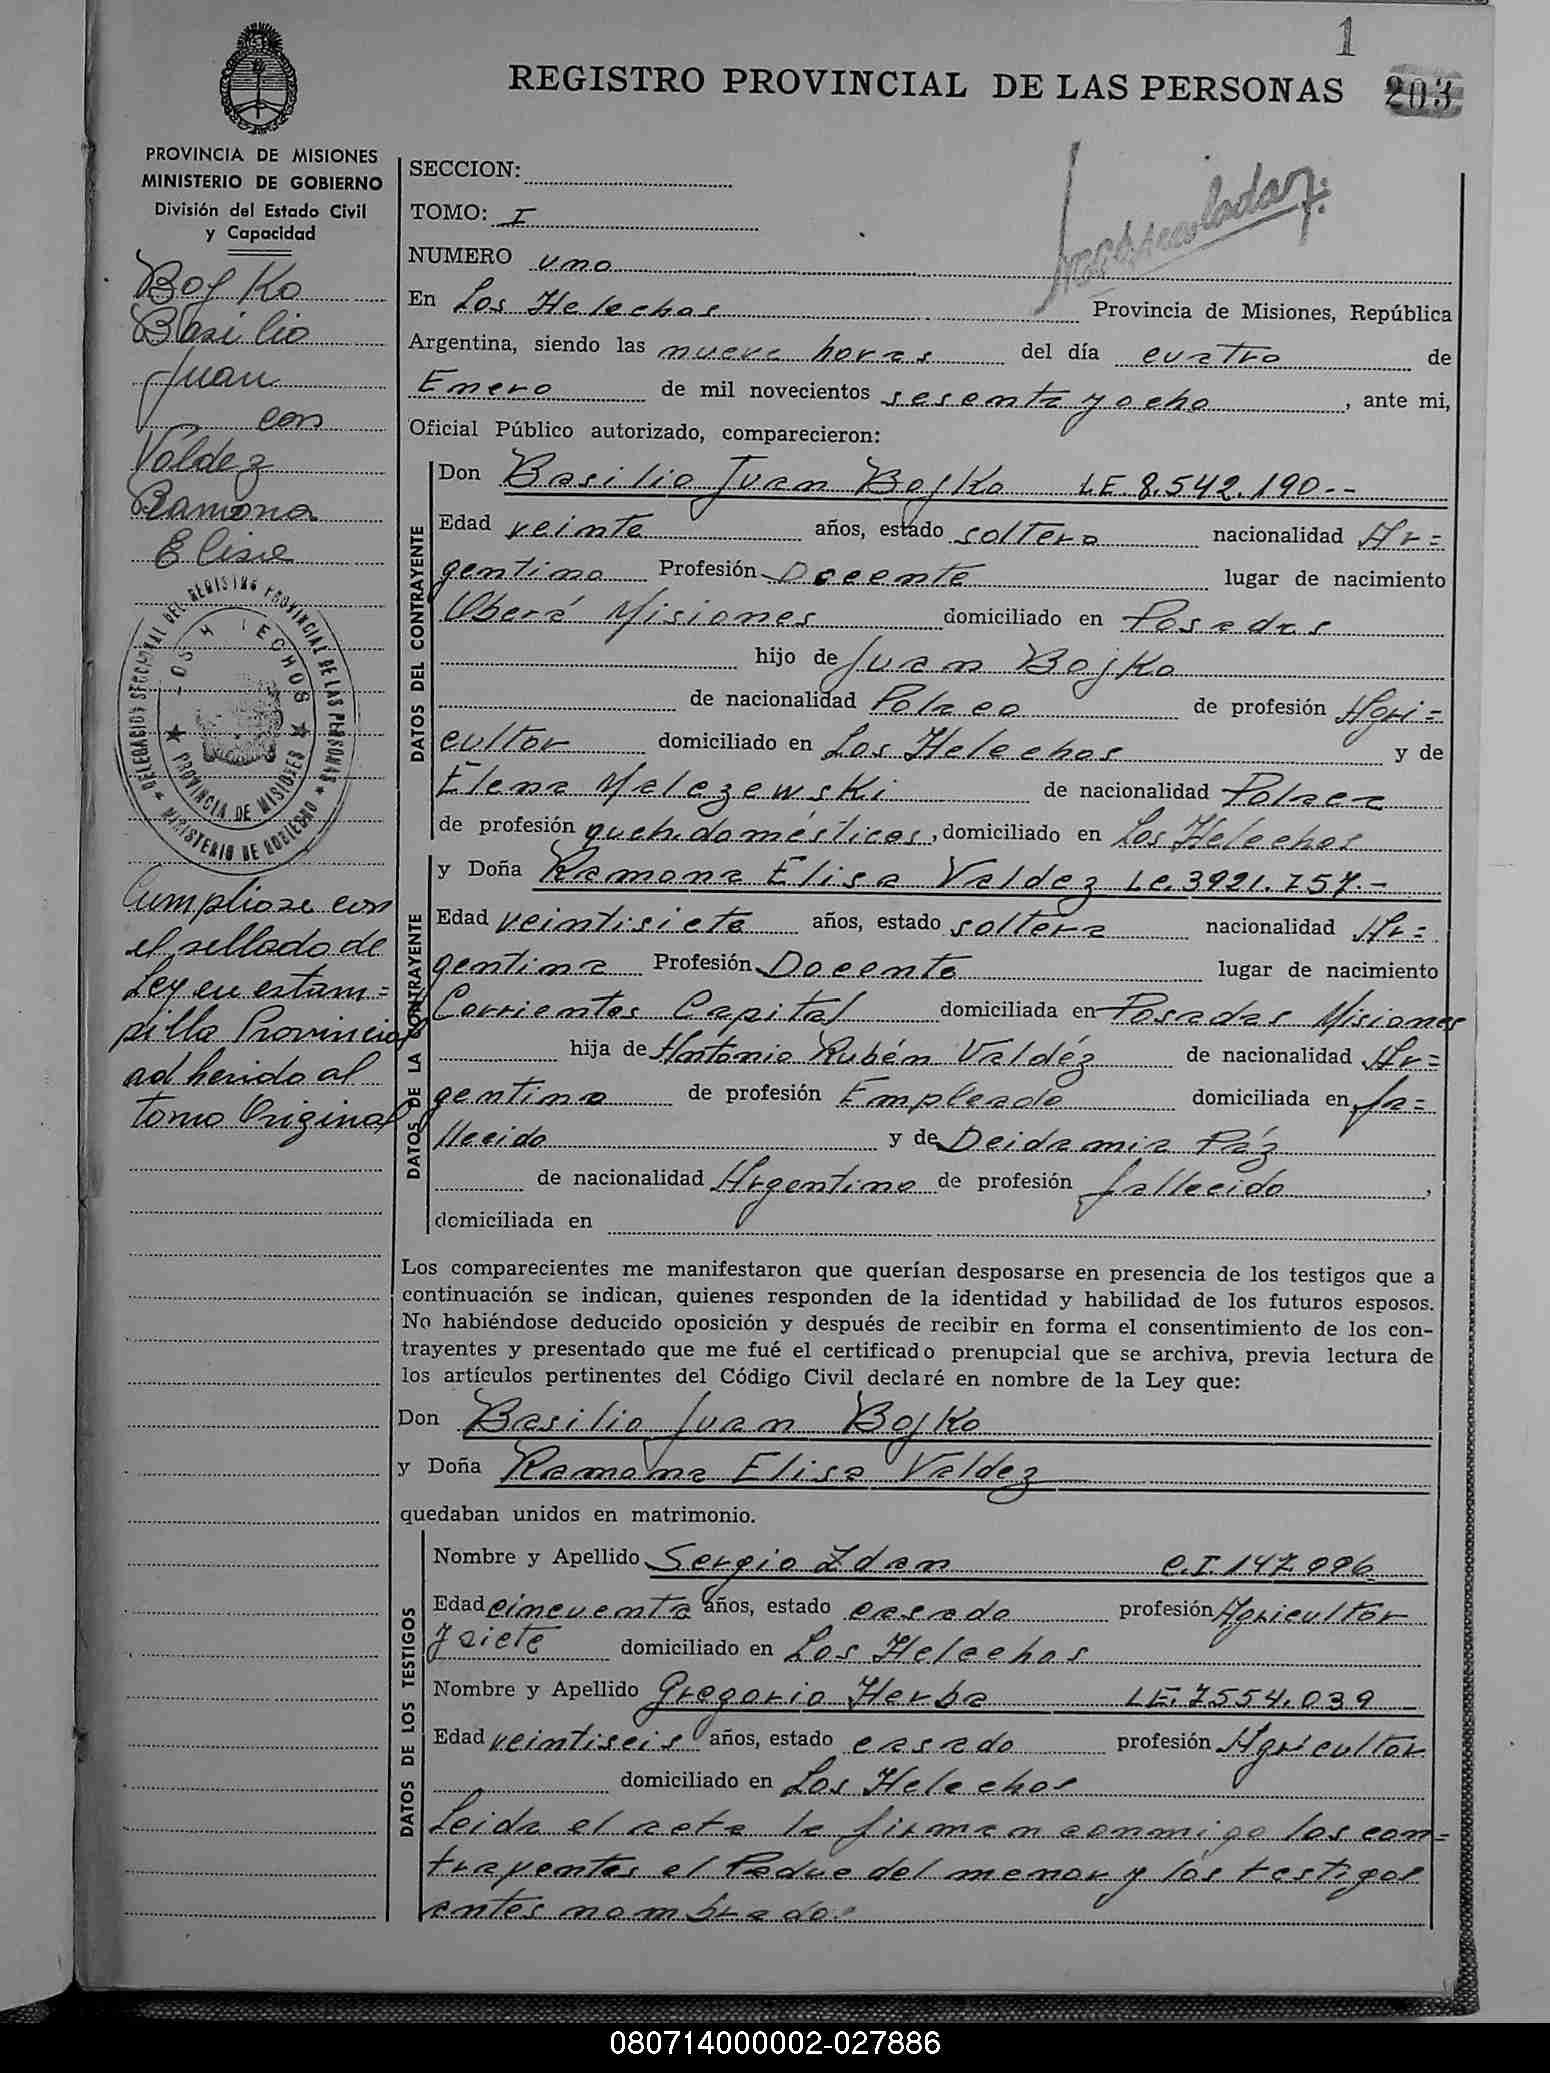 1
REGISTRO PROVINCIAL DE LAS PERSONAS 203
PROVINCIA DE MISIONES
MINISTERIO DE GOBIERNO
División del Estado Civil
y Capacidad
Bojko
Basilio
Juan
con
Váldez
Ramona
Elisa
DELEGACION SECCIONAL DEL REGISTRO PROVINCIAL DE LAS PERSONAS
LOS HELECHOS
PROVINCIA DE MISIONES
MINISTERIO DE GOBIERNO
Cumplióse con
el sellado de
Ley en estam=
pilla Provincial
adherido al
tomo Original
SECCION:
TOMO: I
NUMERO uno
En Los Helechos Provincia de Misiones, República
Argentina, siendo las nueve horas del día cuatro de
Enero de mil novecientos sesenta y ocho, ante mi,
Oficial Público autorizado, comparecieron:
DATOS DEL CONTRAYENTE
Don Basilio Juan Bojko LE 8.542.190--
Edad veinte años, estado soltero nacionalidad Ar=
gentino Profesión Docente lugar de nacimiento
Oberá Misiones domiciliado en Posadas
hijo de Juan Bojko
de nacionalidad Polaco de profesión Agri=
cultor domiciliado en Los Helechos y de
Elena Melezewski de nacionalidad Polaca
de profesión queh. domésticos, domiciliado en Los Helechos
DATOS DE LA CONTRAYENTE
y Doña Ramona Elisa Valdez Lc. 3921.757.-
Edad veintisiete años, estado soltera nacionalidad Ar=
gentina Profesión Docente lugar de nacimiento
Corrientes Capital domiciliada en Posadas Misiones
hija de Antonio Rubén Valdéz de nacionalidad Ar=
gentino de profesión Empleado domiciliada en fa=
llecido y de Deidamia Páz
de nacionalidad Argentino de profesión fallecido,
domiciliada en
Los comparecientes me manifestaron que querían desposarse en presencia de los testigos que a
continuación se indican, quienes responden de la identidad y habilidad de los futuros esposos.
No habiéndose deducido oposición y después de recibir en forma el consentimiento de los con-
trayentes y presentado que me fué el certificado prenupcial que se archiva, previa lectura de
los artículos pertinentes del Código Civil declaré en nombre de la Ley que:
Don Basilio Juan Bojko
y Doña Ramona Elisa Valdez
quedaban unidos en matrimonio.
DATOS DE LOS TESTIGOS
Nombre y Apellido Sergio Zdan C.I. 147.096
Edad cincuenta años, estado casado profesión Agricultor
y siete domiciliado en Los Helechos
Nombre y Apellido Gregorio Herba LE. 7554.039
Edad veintiseis años, estado casado profesión Agricultor
domiciliado en Los Helechos
Leida el acta la firman conmigo los con=
trayentes el Padre del menor y los testigos
antes nombrado.
080714000002-027886